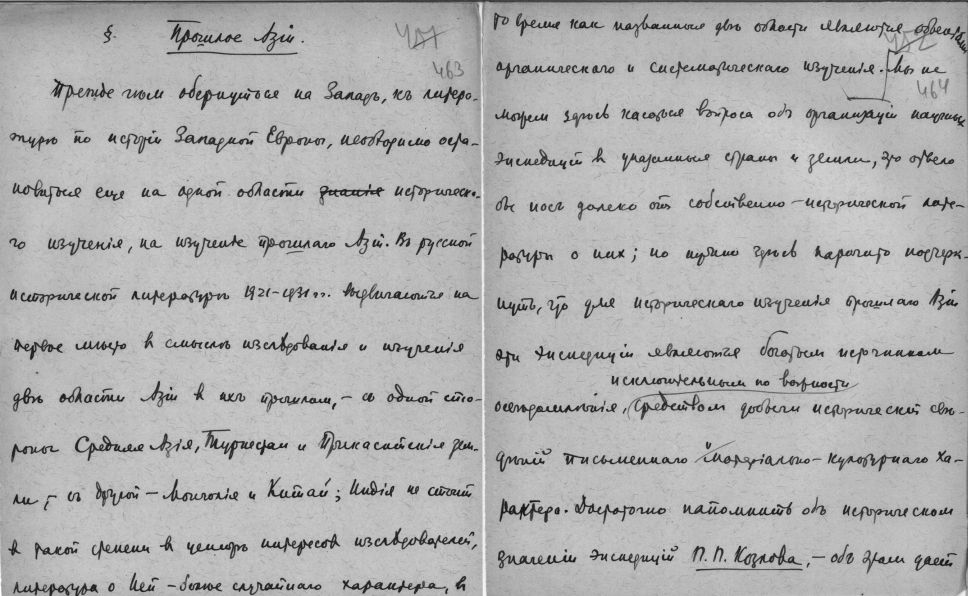 §. Прошлое Азіи.
457
463
Прежде чем обернуться на Западъ, къ литера-
туре по исторіи Западной Европы, необходимо оста-
новиться еще на одной области знанія историческа-
го изученія, на изученіе прошлаго Азіи. Въ русской
исторической литературе 1921-1931 гг. выдвигаются на
первое место в смысле изслѣдованія и изученія
двѣ области Азіи в ихъ прошлом, – съ одной сто-
роны Средняя Азія, Туркестан и Прикаспійскія зем-
ли, – съ другой – Монголія и Китай; Индія не стоит
в такой степени в центрѣ интересов изслѣдователей,
литература о ней – более случайнаго характера, в
то время как названныя двѣ области являются объектами
органическаго и систематическаго изученія. Мы не
464
можем здѣсь касаться вопроса объ организаціи научных
экспедицій в указанныя страны и земли, это отвело
бы насъ далеко отъ собственно-исторической лите-
ратуры о них; но нужно здѣсь нарочито подчерк-
нуть, что для историческаго изученія прошлаго Азіи
эти экспедиціи являются богатым источником
исключительным по важности
освѣдомленія, средством добычи исторической свѣ-
дѣній письменнаго и матеріально-культурнаго ха-
рактера. Достаточно напомнить объ историческом
значеніи экспедицій П. П. Козлова, – объ этом дает